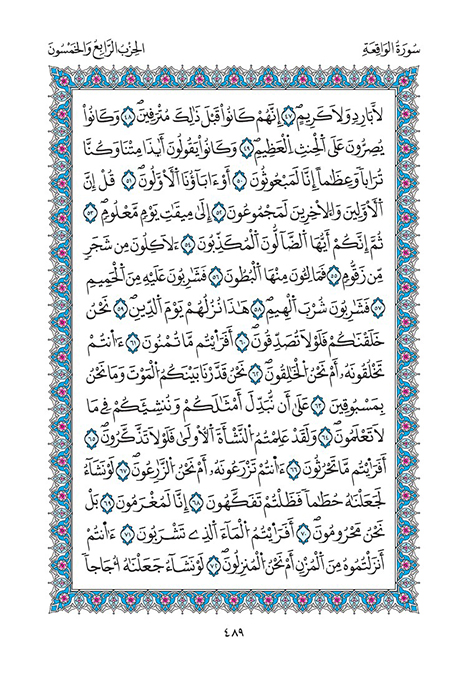 سُورَةُ الْوَاقِعَةِ
الْحِزْبُ الرَّابِعُ وَالْخَمْسُونَ
لَّا بَارِدٍ وَلَا كَرِيمٍ ٤٧ إِنَّهُمْ كَانُوا قَبْلَ ذَٰلِكَ مُتْرَفِينَ ٤٨ وَكَانُوا
يُصِرُّونَ عَلَى الْحِنثِ الْعَظِيمِ ٤٩ وَكَانُوا يَقُولُونَ أَيِذَا مِتْنَا وَكُنَّا
تُرَابًا وَعِظَٰمًا إِنَّا لَمَبْعُوثُونَ ٥٠ أَوَءَابَاؤُنَا الْأَوَّلُونَ ٥١ قُلْ إِنَّ
الْأَوَّلِينَ وَالْأَخِرِينَ لَمَجْمُوعُونَ ٥٢ إِلَىٰ مِيقَٰتِ يَوْمٍ مَّعْلُومٍ ٥٣
ثُمَّ إِنَّكُمْ أَيُّهَا الضَّالُّونَ الْمُكَذِّبُونَ ٥٤ لَأَكِلُونَ مِن شَجَرٍ
مِّن زَقُّومٍ ٥٥ فَمَالِئُونَ مِنْهَا الْبُطُونَ ٥٦ فَشَٰرِبُونَ عَلَيْهِ مِنَ الْحَمِيمِ
٥٧ فَشَٰرِبُونَ شُرْبَ الْهِيمِ ٥٨ هَٰذَا نُزُلُهُمْ يَوْمَ الدِّينِ ٥٩ نَحْنُ
خَلَقْنَٰكُمْ فَلَوْلَا تُصَدِّقُونَ ٦٠ أَفَرَأَيْتُم مَّا تُمْنُونَ ٦١ ءَأَنتُمْ
تَخْلُقُونَهُ أَمْ نَحْنُ الْخَٰلِقُونَ ٦٢ نَحْنُ قَدَّرْنَا بَيْنَكُمُ الْمَوْتَ وَمَا نَحْنُ
بِمَسْبُوقِينَ ٦٣ عَلَىٰ أَن نُّبَدِّلَ أَمْثَٰلَكُمْ وَنُنشِئَكُمْ فِي مَا
لَا تَعْلَمُونَ ٦٤ وَلَقَدْ عَلِمْتُمُ النَّشْأَةَ الْأُولَىٰ فَلَوْلَا تَذَّكَّرُونَ ٦٥
أَفَرَأَيْتُم مَّا تَحْرُثُونَ ٦٦ ءَأَنتُمْ تَزْرَعُونَهُ أَمْ نَحْنُ الزَّٰرِعُونَ ٦٧ لَوْ نَشَاءُ
لَجَعَلْنَٰهُ حُطَٰمًا فَظَلْتُمْ تَفَكَّهُونَ ٦٨ إِنَّا لَمُغْرَمُونَ ٦٩ بَلْ
نَحْنُ مَحْرُومُونَ ٧٠ أَفَرَأَيْتُمُ الْمَاءَ الَّذِي تَشْرَبُونَ ٧١ ءَأَنتُمْ
أَنزَلْتُمُوهُ مِنَ الْمُزْنِ أَمْ نَحْنُ الْمُنزِلُونَ ٧٢ لَوْ نَشَاءُ جَعَلْنَٰهُ أُجَاجًا
٤٨٩